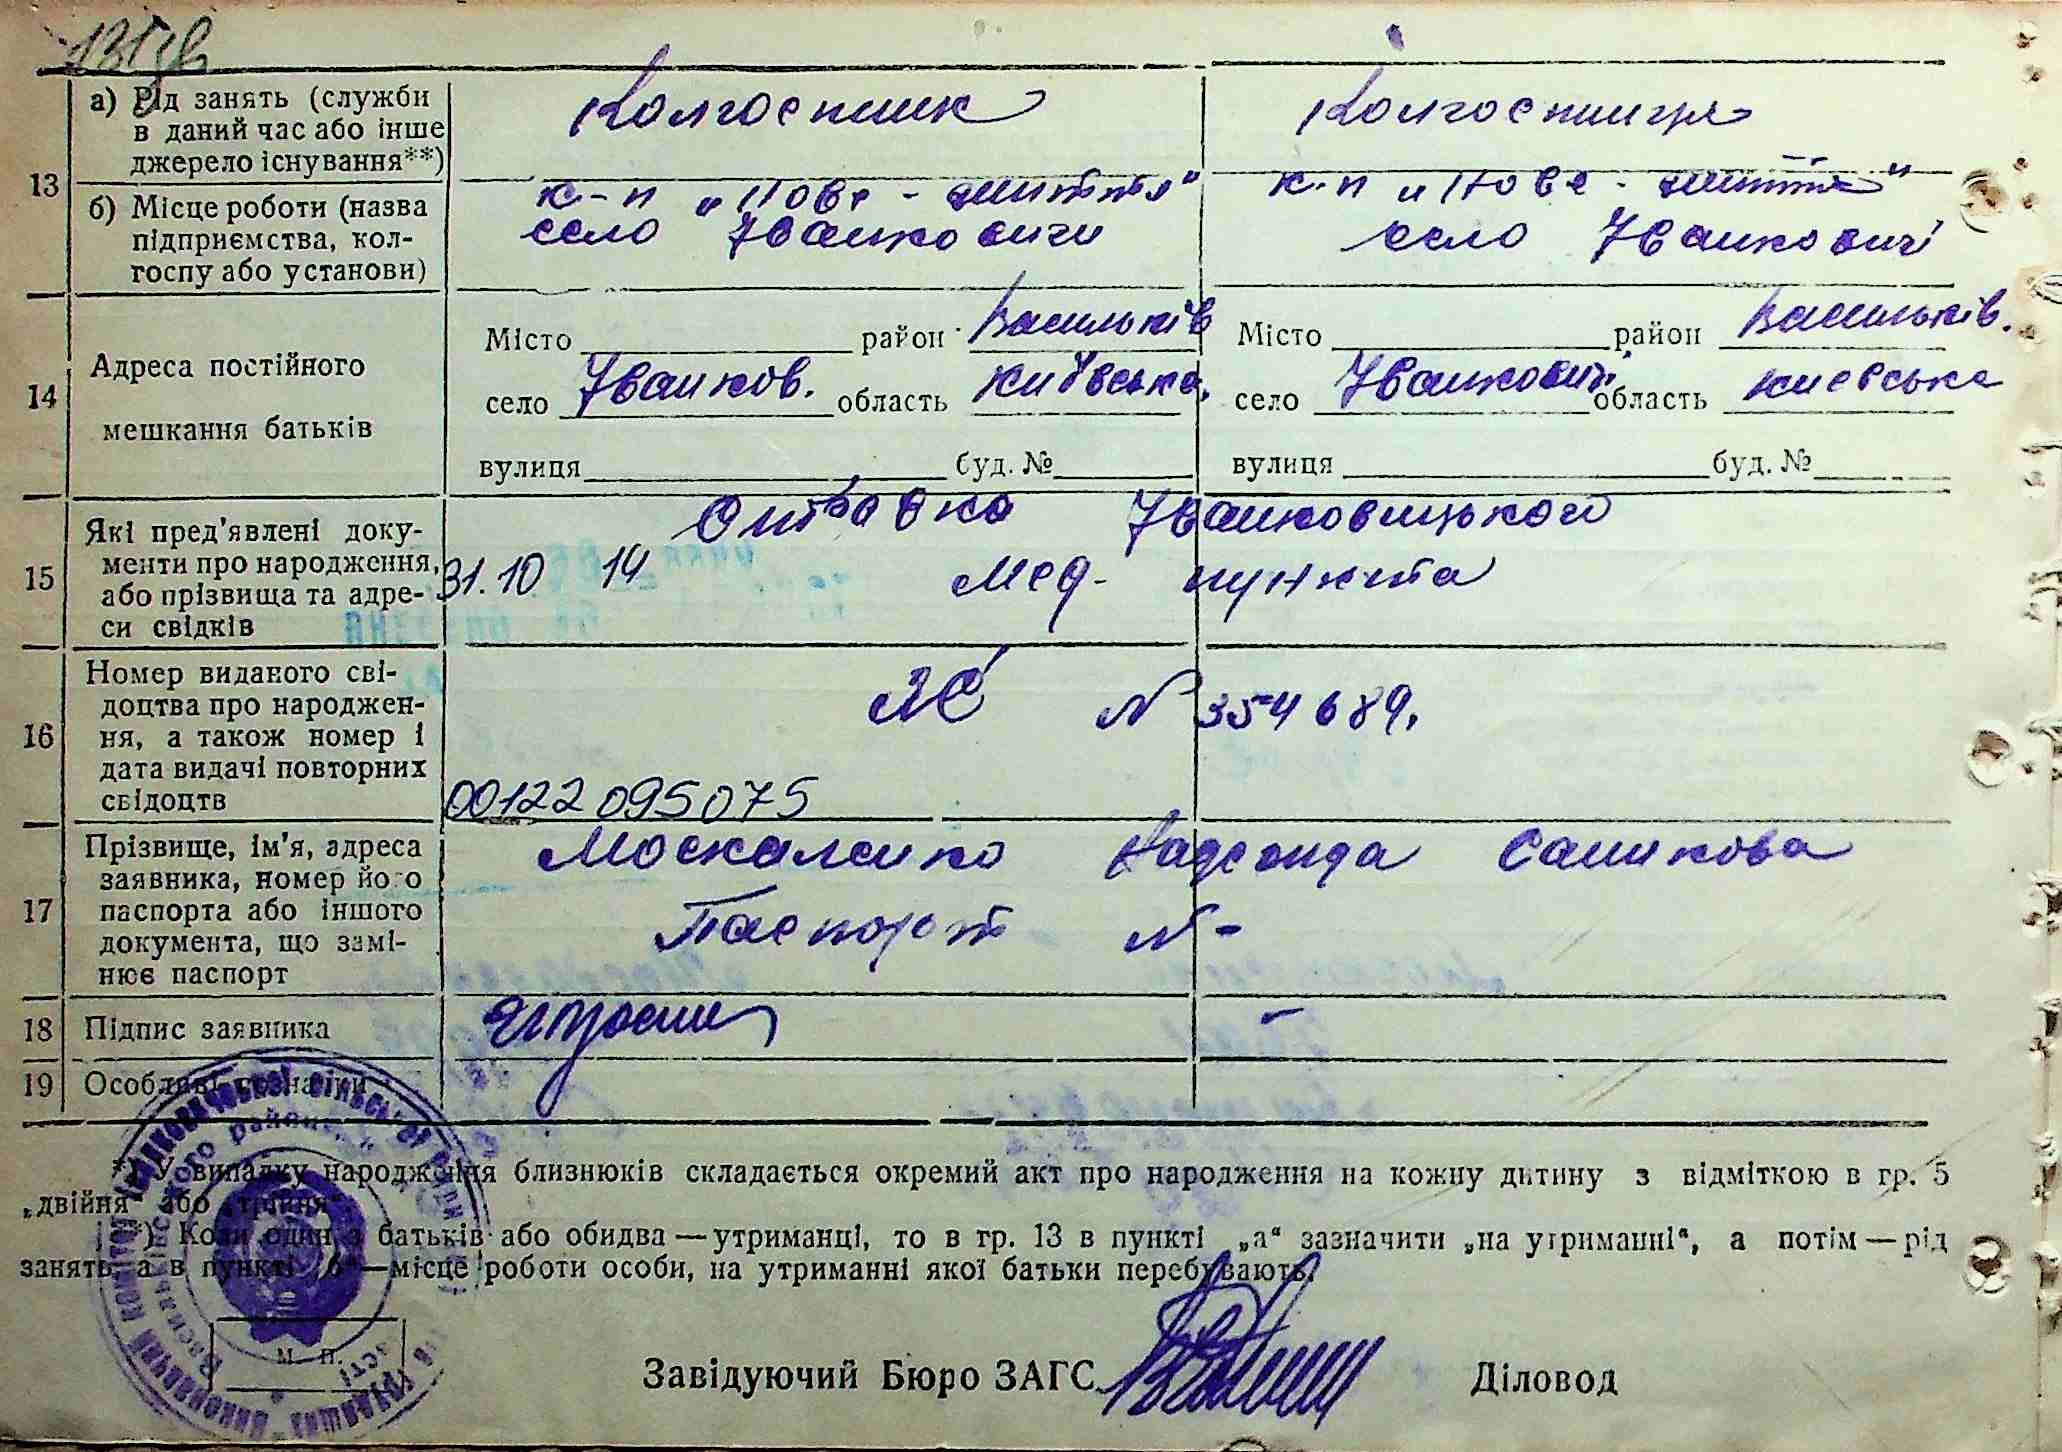 13
а) Рід занять (служби
в даний час або інше
джерело існування**)
Колгоспник
Колгоспниця
б) Місце роботи (назва
підприємства, кол-
госпу або установи)
к-п „Нове - життя“
село Іванковичи
к-п „Нове - життя“
село Іванковичі
14
Адреса постійного
мешкання батьків
Місто район Васильків
село Іванков. область Київська.
вулиця буд. №
Місто район Васильків.
село Іванковичі область Киевська
вулиця буд. №
15
Які пред'явлені доку-
менти про народження,
або прізвища та адре-
си свідків
Справка Іванковицького
31.10 14 мед- пункта
16
Номер виданого сві-
доцтва про народжен-
ня, а також номер і
дата видачі повторних
свідоцтв
N 354689.
00122095075
17
Прізвище, ім'я, адреса
заявника, номер його
паспорта або іншого
документа, що замі-
нює паспорт
Москаленко
Паспорт N -
18
Підпис заявника
-
19
Особливі познаки
*) У випадку народження близнюків складається окремий акт про народження на кожну дитину з відміткою в гр. 5
„двійня“ або „трійня“
**) Коли один з батьків або обидва—утриманці, то в гр. 13 в пункті „а“ зазначити „на утриманні“, а потім—рід
занять, а в пункті „б“—місце роботи особи, на утриманні якої батьки перебувають.
М. П.
Завідуючий Бюро ЗАГС
Діловод